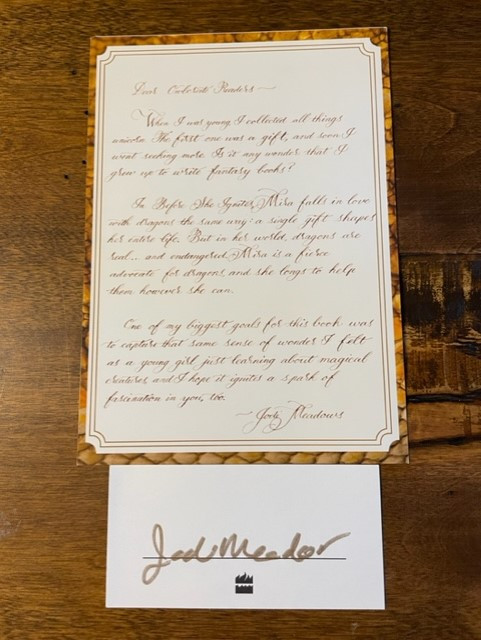 Dear Owlcrate Readers—
When I was young I collected all things
unicorn. The first one was a gift, and soon I
went seeking more. Is it any wonder that I
grew up to write fantasy books?
In Before She Ignites, Mira falls in love
with dragons the same way: a single gift shapes
her entire life. But in her world, dragons are
real... and endangered. Mira is a fierce
advocate for dragons, and she longs to help
them however she can.
One of my biggest goals for this book was
to capture that same sense of wonder I felt
as a young girl just learning about magical
creatures, and I hope it ignites a spark of
fascination in you, too.
—Jodi Meadows
Jodi Meadows